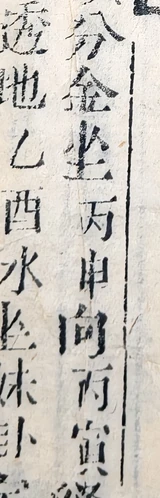 分金坐丙申向丙寅
透地乙酉水歸妹卦